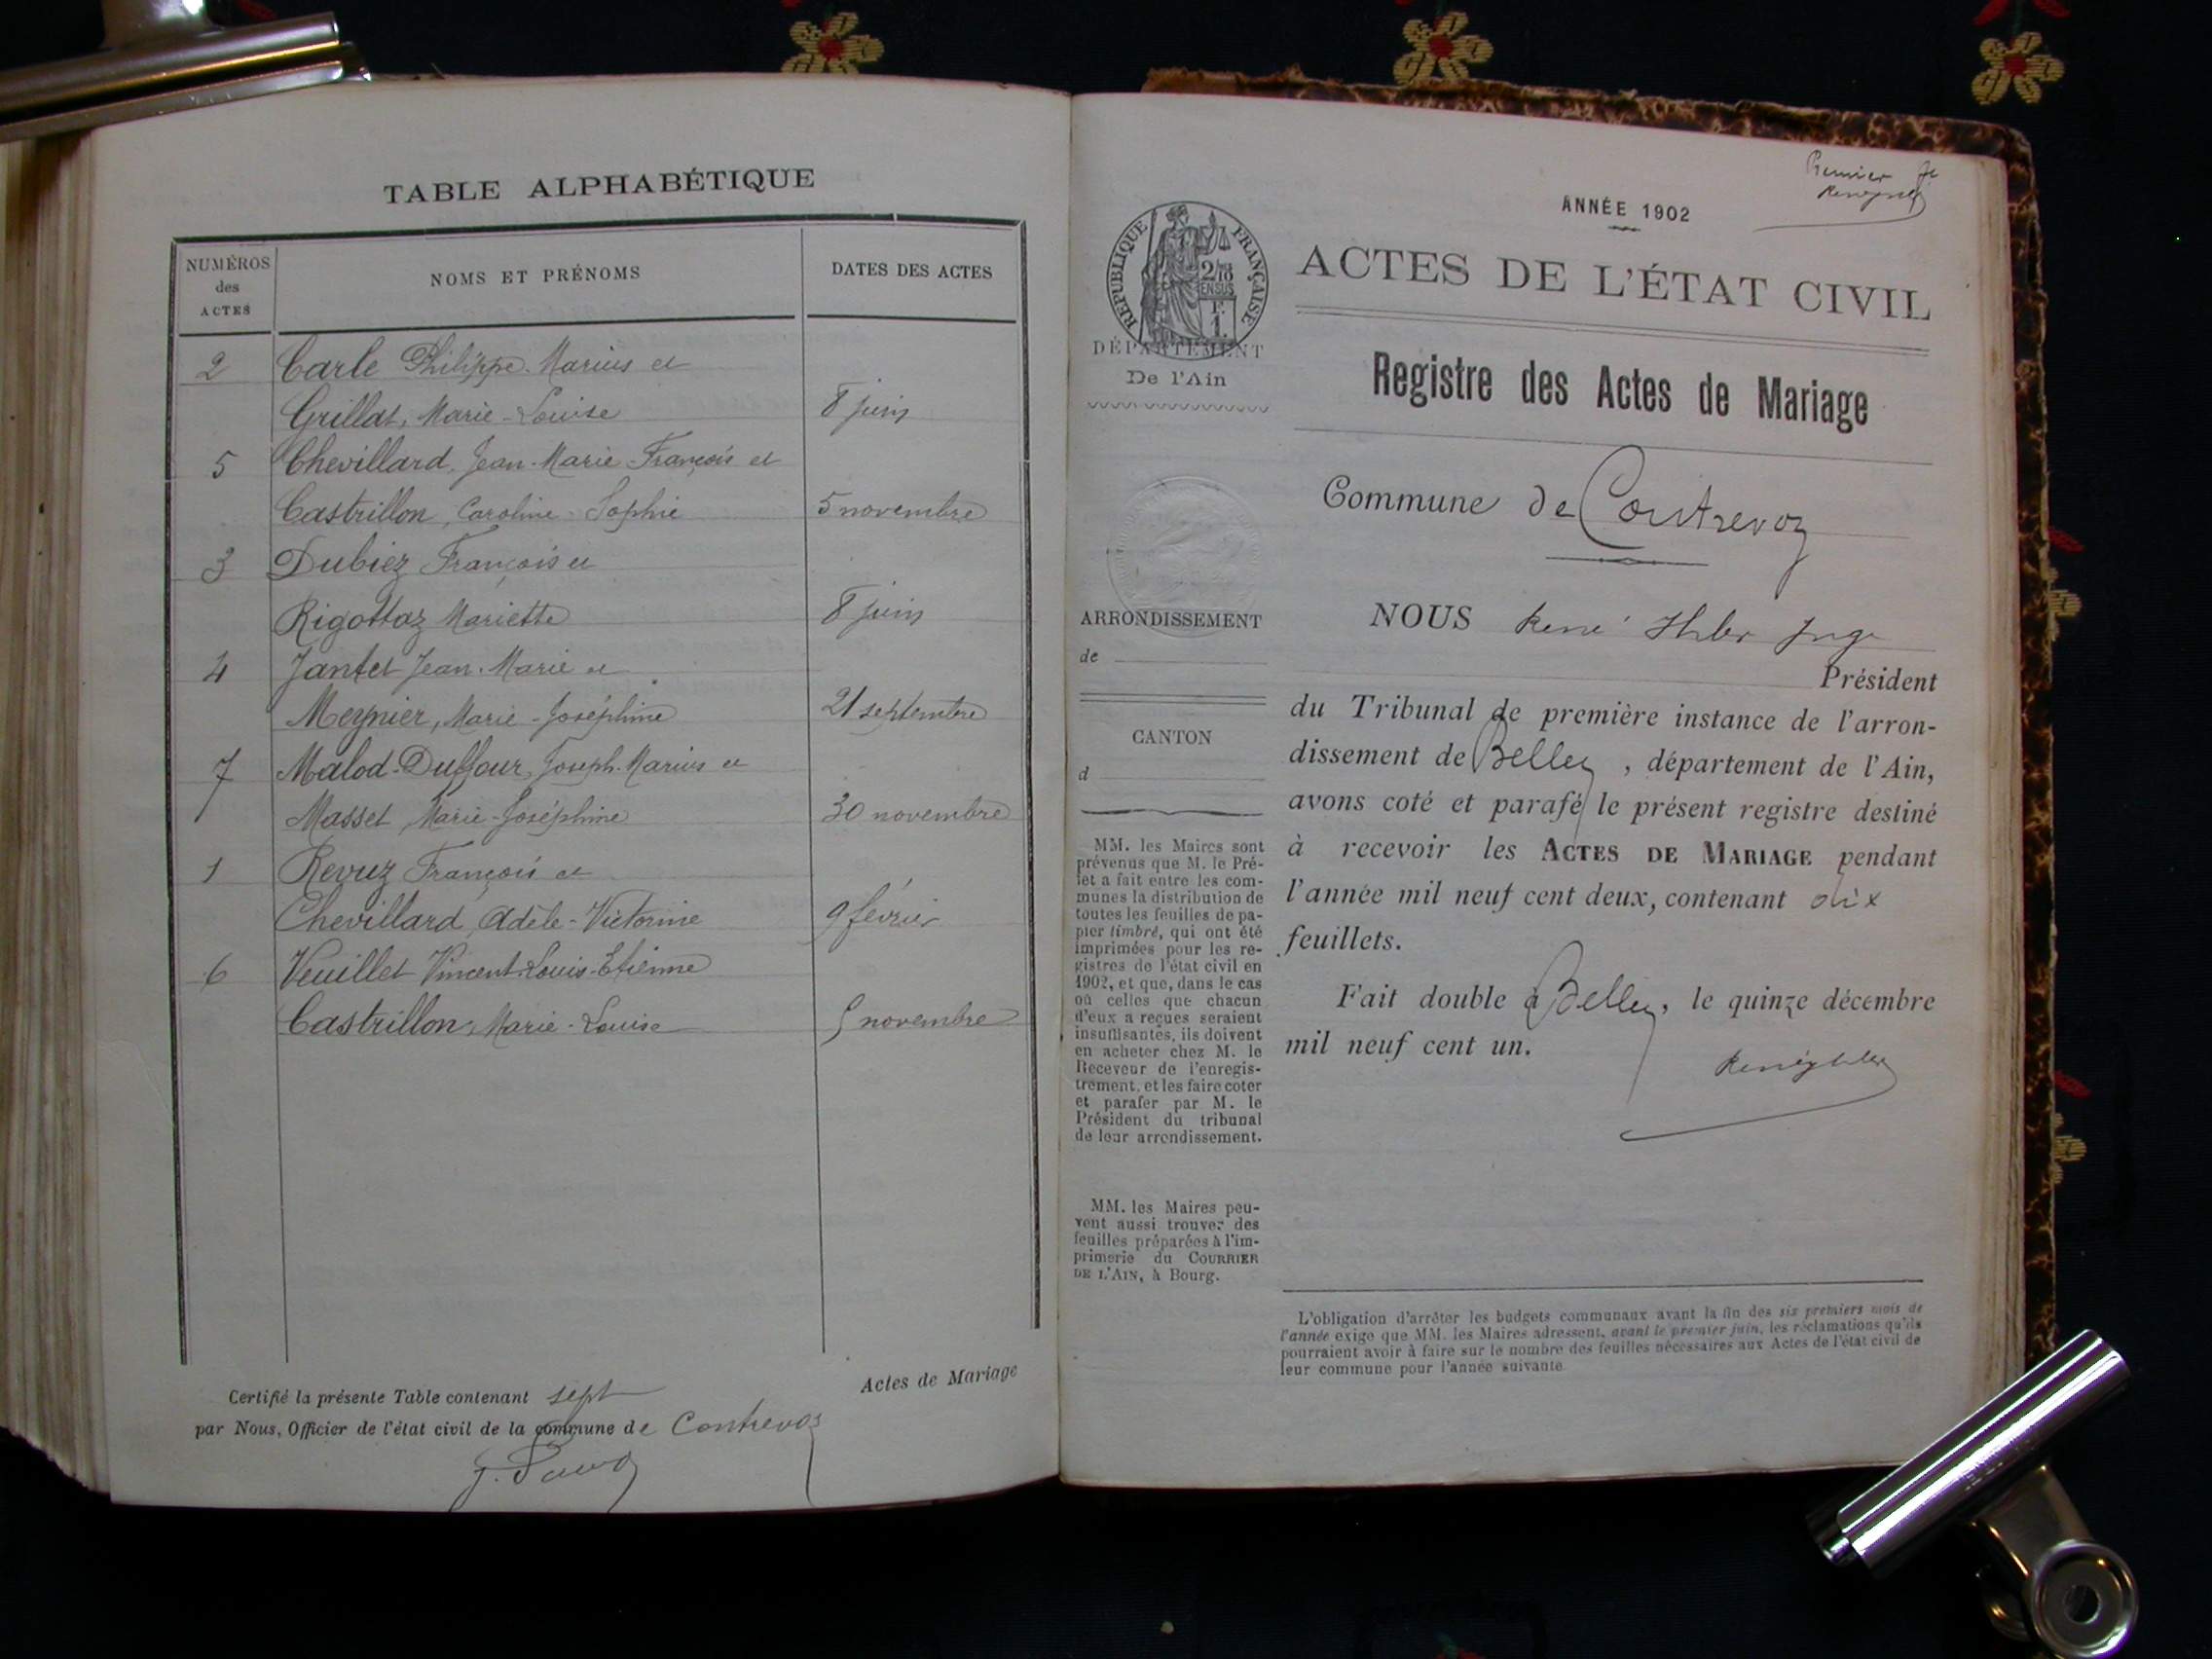 TABLE ALPHABÉTIQUE
NUMÉROS
des
ACTES
NOMS ET PRÉNOMS
DATES DES ACTES
2 Carle Philippe-Marius et
Grillat, Marie-Louise 8 juin
5 Chevillard, Jean-Marie-François et
Castrillon, Caroline-Sophie 5 novembre
3 Dubiez François et
Rigottaz Mariette 8 juin
4 Jantet Jean-Marie et
Meynier, Marie-Joséphine 21 septembre
7 Malod-Duffour, Joseph-Marius et
Masset, Marie-Joséphine 30 novembre
1 Revuz François et
Chevillard, Adèle-Victorine 9 février
6 Veuillet Vincent-Louis-Etienne
Castrillon, Marie-Louise 5 novembre
Certifié la présente Table contenant sept Actes de Mariage
par Nous, Officier de l'état civil de la commune de Contrevoz
Premier
ANNÉE 1902
RÉPUBLIQUE FRANÇAISE
2/10
EN SUS
F.
1.
ACTES DE L'ÉTAT CIVIL
DÉPARTEMENT
De l'Ain
Registre des Actes de Mariage
Commune de Contrevoz
ARRONDISSEMENT
de
CANTON
d
MM. les Maires sont
prévenus que M. le Pré-
fet a fait entre les com-
munes la distribution de
toutes les feuilles de pa-
pier timbré, qui ont été
imprimées pour les re-
gistres de l'état civil en
1902, et que, dans le cas
où celles que chacun
d'eux a reçues seraient
insuffisantes, ils doivent
en acheter chez M. le
Receveur de l'enregis-
trement, et les faire coter
et parafer par M. le
Président du tribunal
de leur arrondissement.
MM. les Maires peu-
vent aussi trouver des
feuilles préparées à l'im-
primerie du COURRIER
DE L'AIN, à Bourg.
NOUS René
Président
du Tribunal de première instance de l'arron-
dissement de Belley, département de l'Ain,
avons coté et parafé le présent registre destiné
à recevoir les ACTES DE MARIAGE pendant
l'année mil neuf cent deux, contenant dix
feuillets.
Fait double à Belley, le quinze décembre
mil neuf cent un.
L'obligation d'arrêter les budgets communaux avant la fin des six premiers mois de
l'année exige que MM. les Maires adressent, avant le premier juin, les réclamations qu'ils
pourraient avoir à faire sur le nombre des feuilles nécessaires aux Actes de l'état civil de
leur commune pour l'année suivante